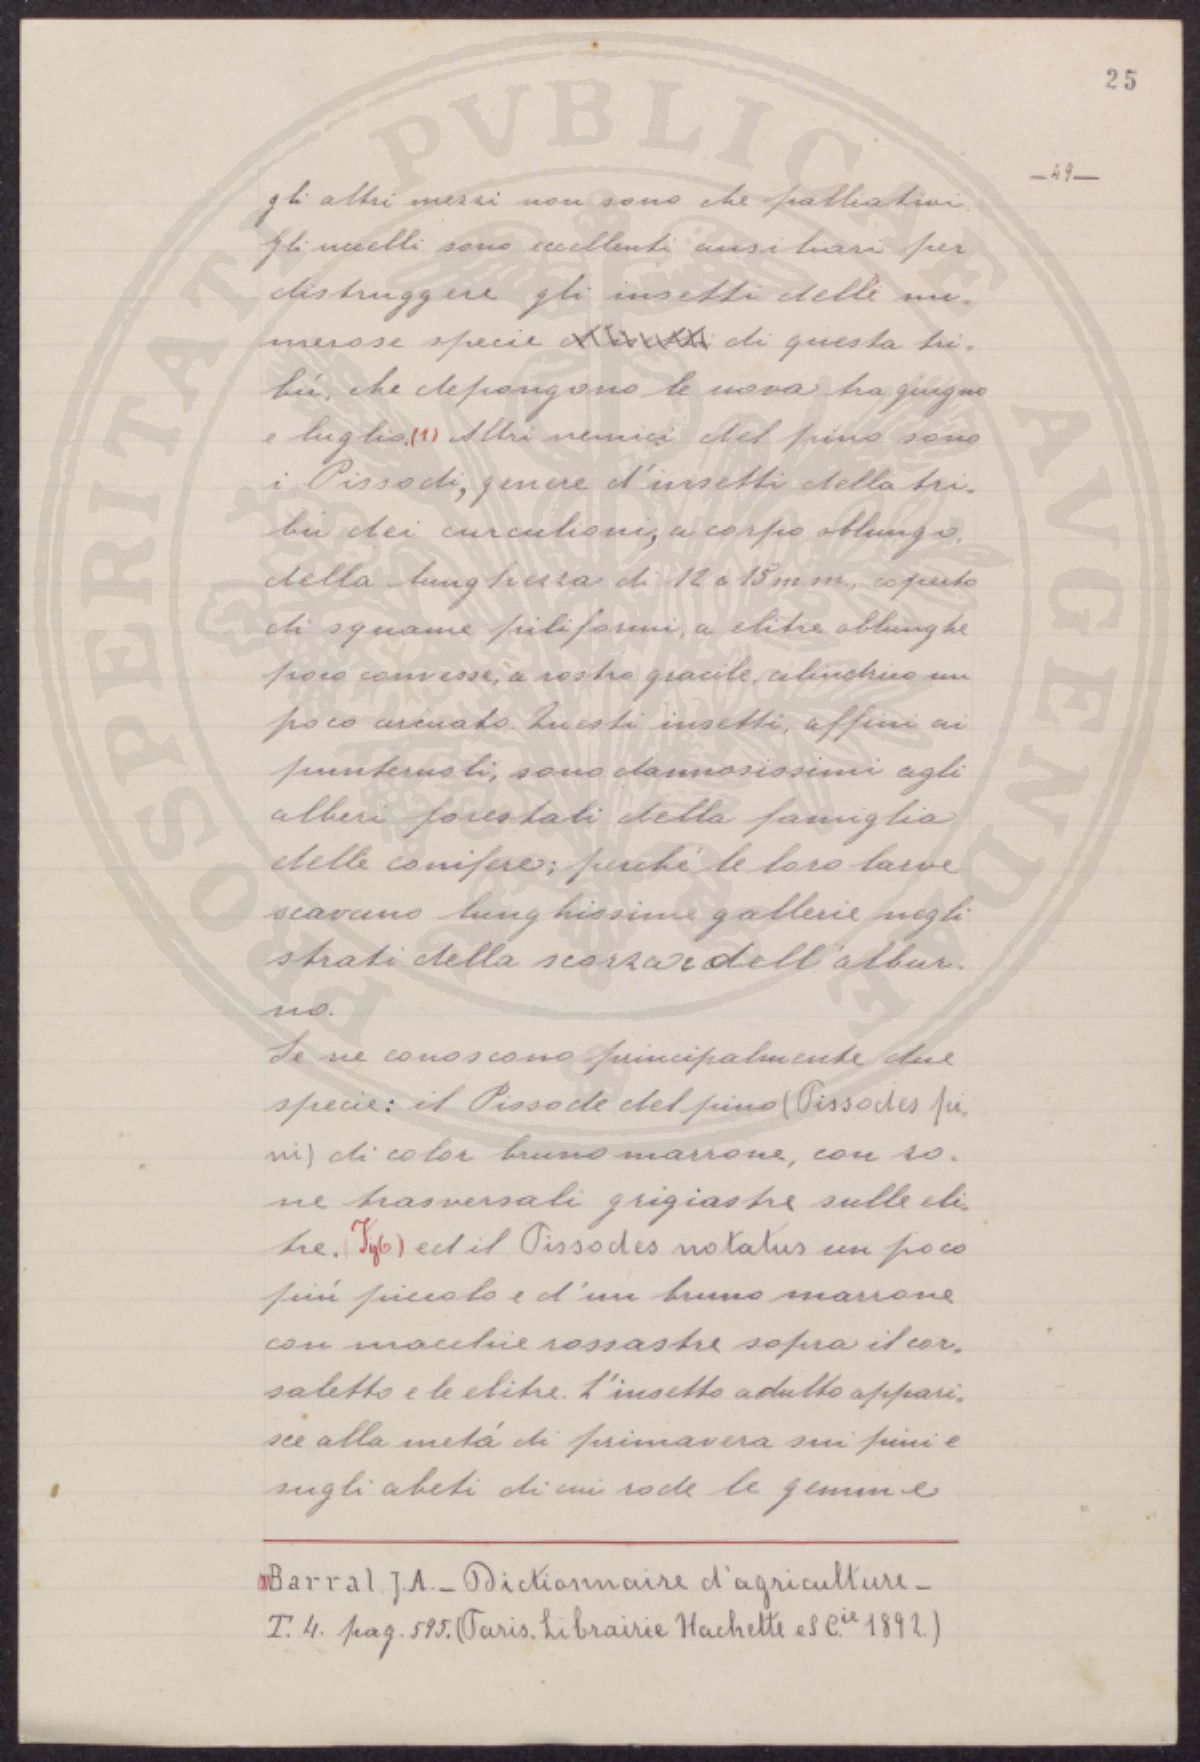 25
—49—
gli altri mezzi non sono che palliativi.
Gli uccelli sono eccellenti ausiliari per
distruggere gli insetti delle nu-
merose specie di questa tri-
bù, che depongono le uova tra giugno
e luglio.(1) Altri nemici del pino sono
i Pissodi, genere d'insetti della tri-
bù dei curculioni, a corpo oblungo,
della lunghezza di 12 a 15 m.m., coperto
di squame piliformi, a elitre oblunghe
poco convesse, a rostro gracile, cilindrico un
poco arcuato. Questi insetti, affini ai
punteruoli, sono dannosissimi agli
alberi forestali della famiglia
delle conifere; perché le loro larve
scavano lunghissime gallerie negli
strati della scorza e dell'albur-
no.
Se ne conoscono principalmente due
specie: il Pissode del pino (Pissodes pi-
ni) di color bruno marrone, con zo-
ne trasversali grigiastre sulle eli-
tre. (Fig 6) ed il Pissodes notatus un poco
piú piccolo e d'un bruno marrone
con macchie rossastre sopra il cor-
saletto e le elitre. L'insetto adulto appari-
sce alla metá di primavera sui pini e
sugli abeti di cui rode le gemme
(1) Barral J.A. – Dictionnaire d'agriculture –
T. 4. pag. 595. (Paris, Librairie Hachette et C.ie 1892.)
PROSPERITATI PVBLICAE AVGENDAE